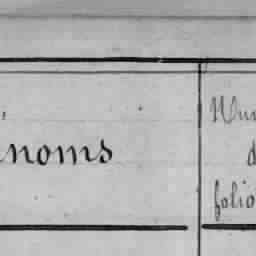 noms
Nu
d
folio